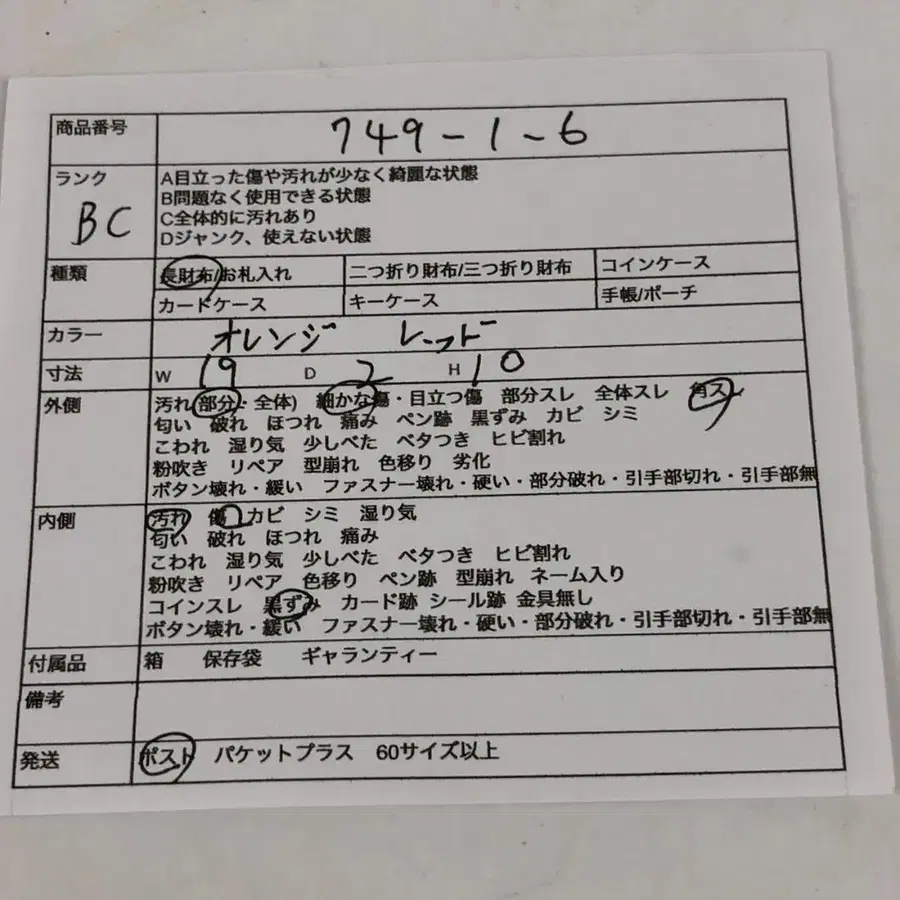 商品番号 749-1-6
ランク BC
A目立った傷や汚れが少なく綺麗な状態
B問題なく使用できる状態
C全体的に汚れあり
Dジャンク、使えない状態
種類 長財布/お札入れ 二つ折り財布/三つ折り財布 コインケース
カードケース キーケース 手帳/ポーチ
カラー オレンジ レッド
寸法 W 19 D 2 H 10
外側 汚れ(部分・全体) 細かな傷・目立つ傷 部分スレ 全体スレ 角スレ
匂い 破れ ほつれ 痛み ペン跡 黒ずみ カビ シミ
こわれ 湿り気 少しべた ベタつき ヒビ割れ
粉吹き リペア 型崩れ 色移り 劣化
ボタン壊れ・緩い ファスナー壊れ・硬い・部分破れ・引手部切れ・引手部無
内側 汚れ 傷 カビ シミ 湿り気
匂い 破れ ほつれ 痛み
こわれ 湿り気 少しべた ベタつき ヒビ割れ
粉吹き リペア 色移り ペン跡 型崩れ ネーム入り
コインスレ 黒ずみ カード跡 シール跡 金具無し
ボタン壊れ・緩い ファスナー壊れ・硬い・部分破れ・引手部切れ・引手部無
付属品 箱 保存袋 ギャランティー
備考
発送 ポスト パケットプラス 60サイズ以上